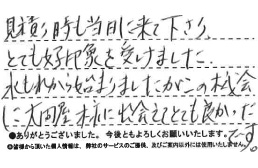 見積り時も当日に来て下さり
とても好印象を受けました。
水もれから始まりましたがこの機会
に大問屋さんに出会えてとても良かった
です。
●ありがとうございました。今後ともよろしくお願いいたします。
◎皆様から頂いた個人情報は、弊社のサービスのご提供、及びご案内以外には使用いたしません。